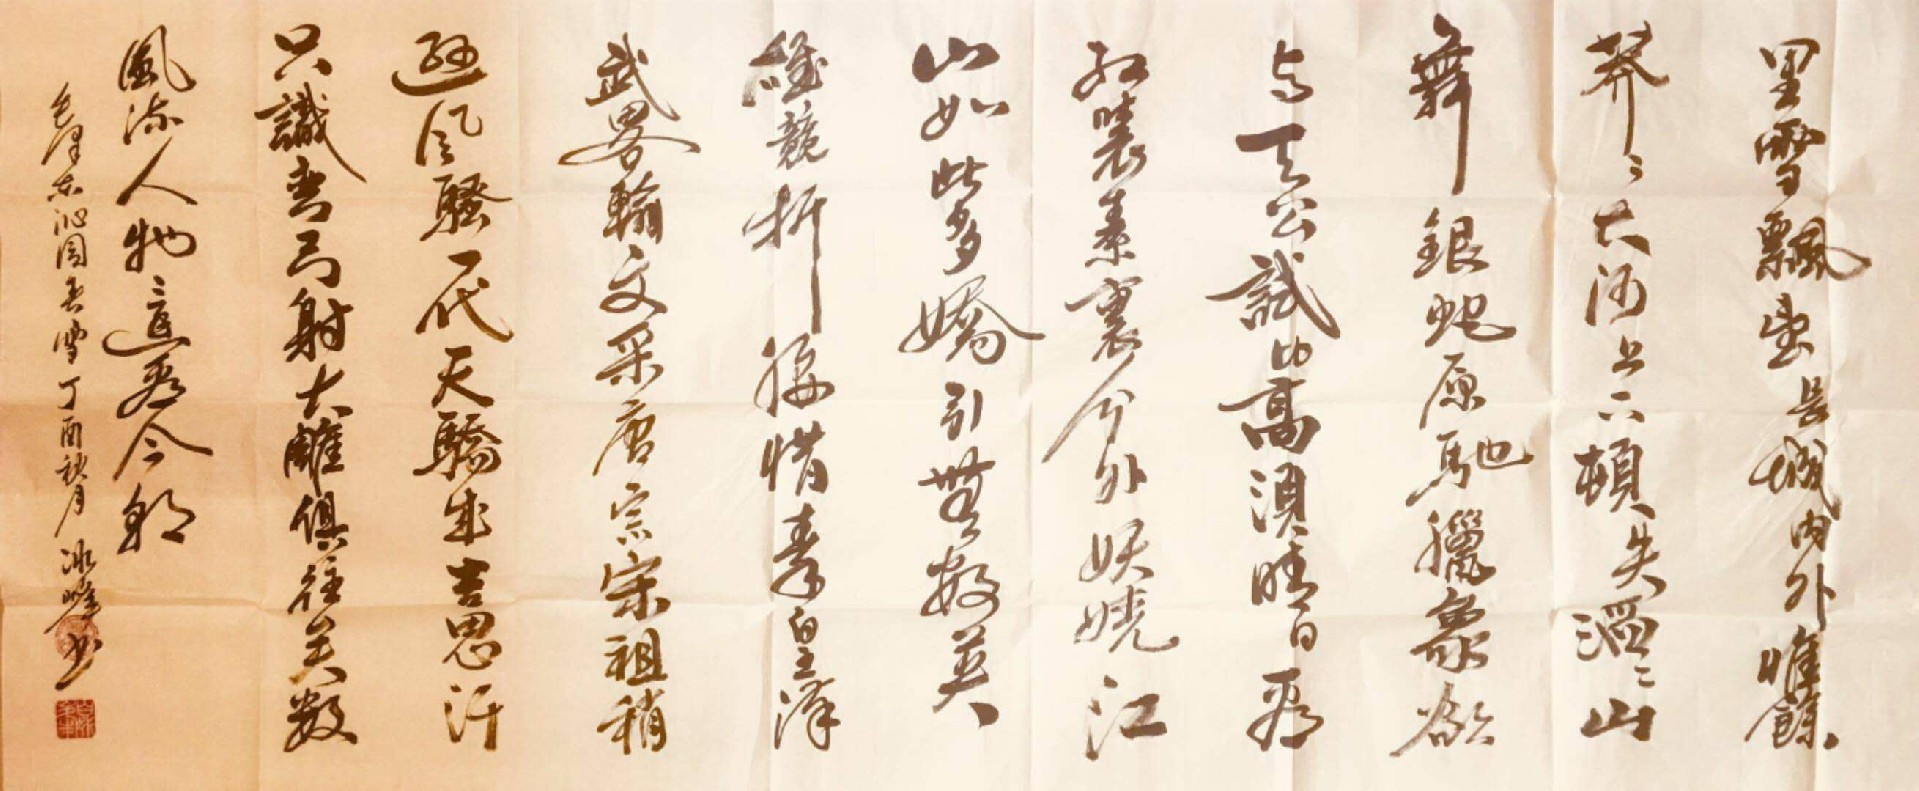 里雪飄望長城内外惟餘
莽〻大河上下頓失滔〻山
舞銀蛇原馳臘象欲
与天公試比高須晴日看
紅裝素裹分外妖嬈江
山如此多嬌引無數英
雄競折腰惜秦皇漢
武略輸文采唐宗宋祖稍
遜風騷一代天驕成吉思汗
只識彎弓射大雕俱往矣數
風流人物還看今朝
毛澤東沁園春雪丁酉秋月冰峰书